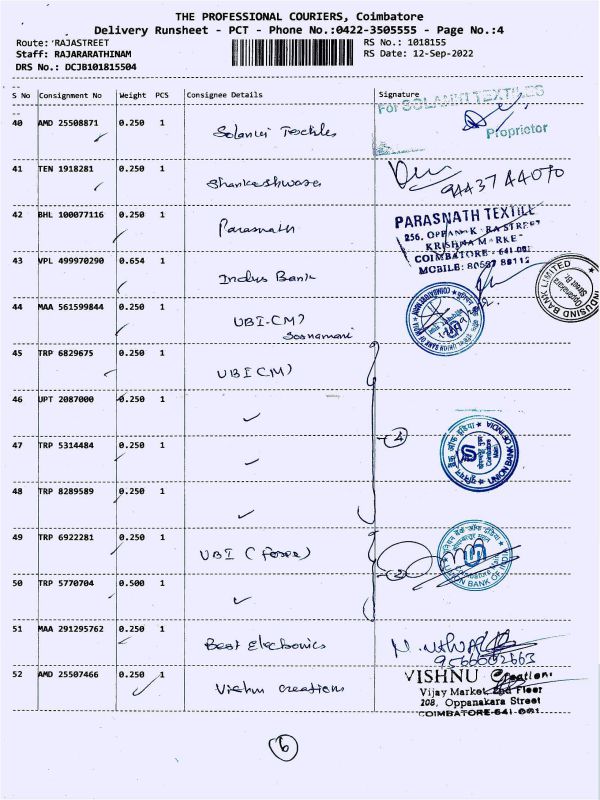 THE PROFESSIONAL COURIERS, Coimbatore
Delivery Runsheet - PCT - Phone No.:0422-3505555 - Page No.:4
Route: RAJASTREET RS No.: 1018155
Staff: RAJARARATHINAM RS Date: 12-Sep-2022
DRS No.: DCJB101815504
S No Consignment No Weight PCS Consignee Details Signature
For SOLANKI TEXTILES
40 AMD 25508871 0.250 1 Solanki Textiles
Proprietor
41 TEN 1918281 0.250 1 Shankeshwara
9443744070
42 BHL 100077116 0.250 1 Parasnath
PARASNATH TEXTILE
256, OPPANAK RA STREET
KRISHNA MARKE
COIMBATORE - 641 001
MOBILE: 80587 88112
43 VPL 499970290 0.654 1 Indus Bank
INDUSIND BANK LIMITED
Oppanakara
Street Br.
44 MAA 561599844 0.250 1 UBI-(M)
45 TRP 6829675 0.250 1 UBI (M)
46 UPT 2087000 0.250 1
4
47 TRP 5314484 0.250 1
यूनियन बैंक ऑफ इंडिया
UNION BANK OF INDIA
Coimbatore
Main
48 TRP 8289589 0.250 1
49 TRP 6922281 0.250 1 UBI (Forex)
2
UNION BANK OF INDIA
50 TRP 5770704 0.500 1
51 MAA 291295762 0.250 1 Best Electronics
9566602663
52 AMD 25507466 0.250 1 Vishnu Creations
VISHNU Creation
Vijay Market, 2nd Floor
208, Oppanakara Street
COIMBATORE-641 001
6